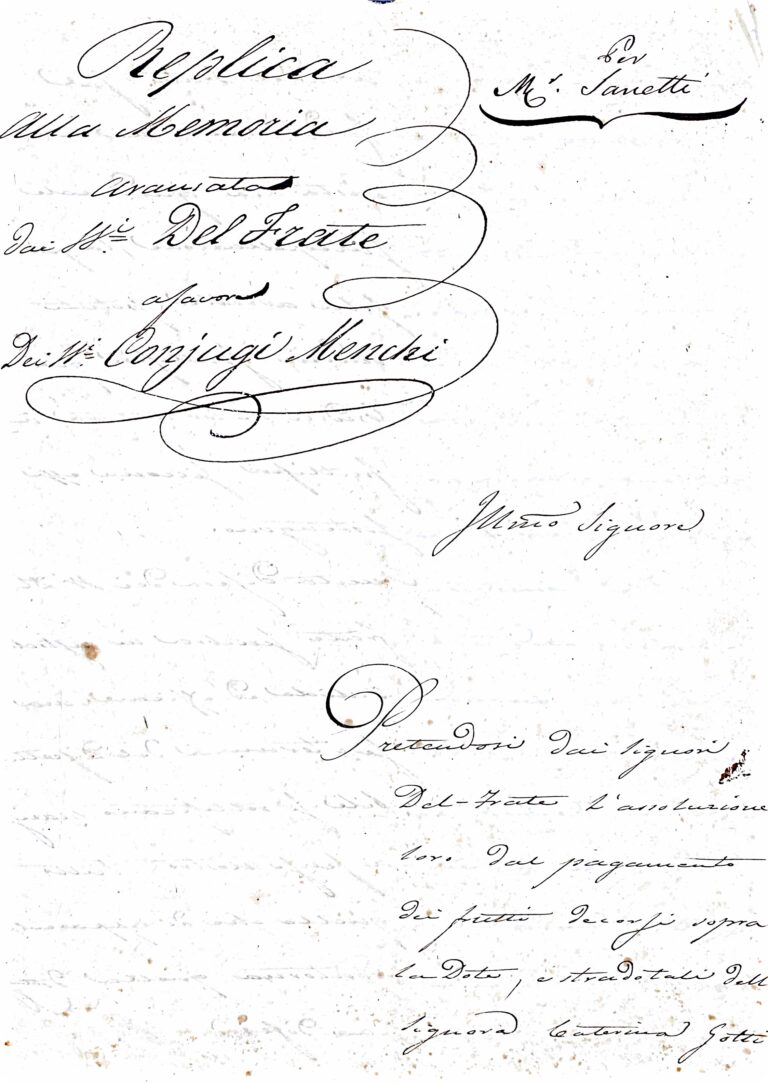 Replica
alla Memoria
avanzata
dai SS.i Del Frate
a favore
Dei SS.i Conjugi Menchi
Per
Mr. Sanetti
Illmo Signore
Pretendosi dai Signori
Del-Frate l'assoluzione
loro dal pagamento
dei frutti decorsi sopra
la Dote, e stradotali dell
Signora Caterina Gotti